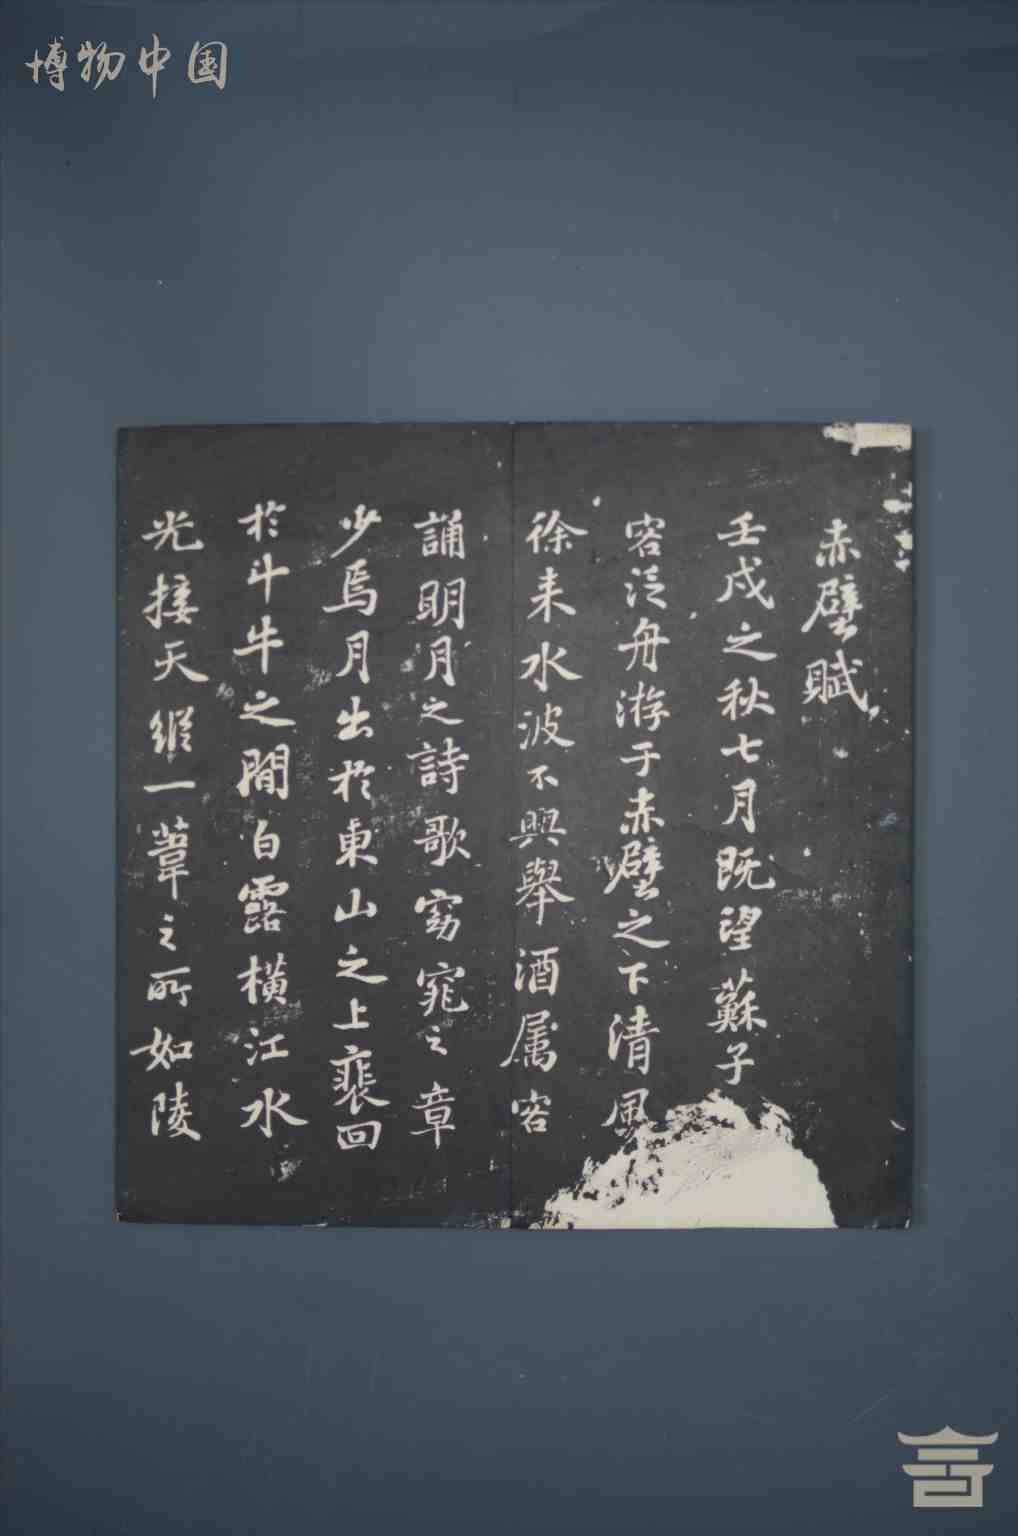 博物中国
赤壁賦
壬戌之秋七月既望蘇子
客泛舟游于赤壁之下清風
徐来水波不興舉酒属客
誦明月之詩歌窈窕之章
少焉月出於東山之上裴回
於斗牛之間白露横江水
光接天縱一葦之所如陵